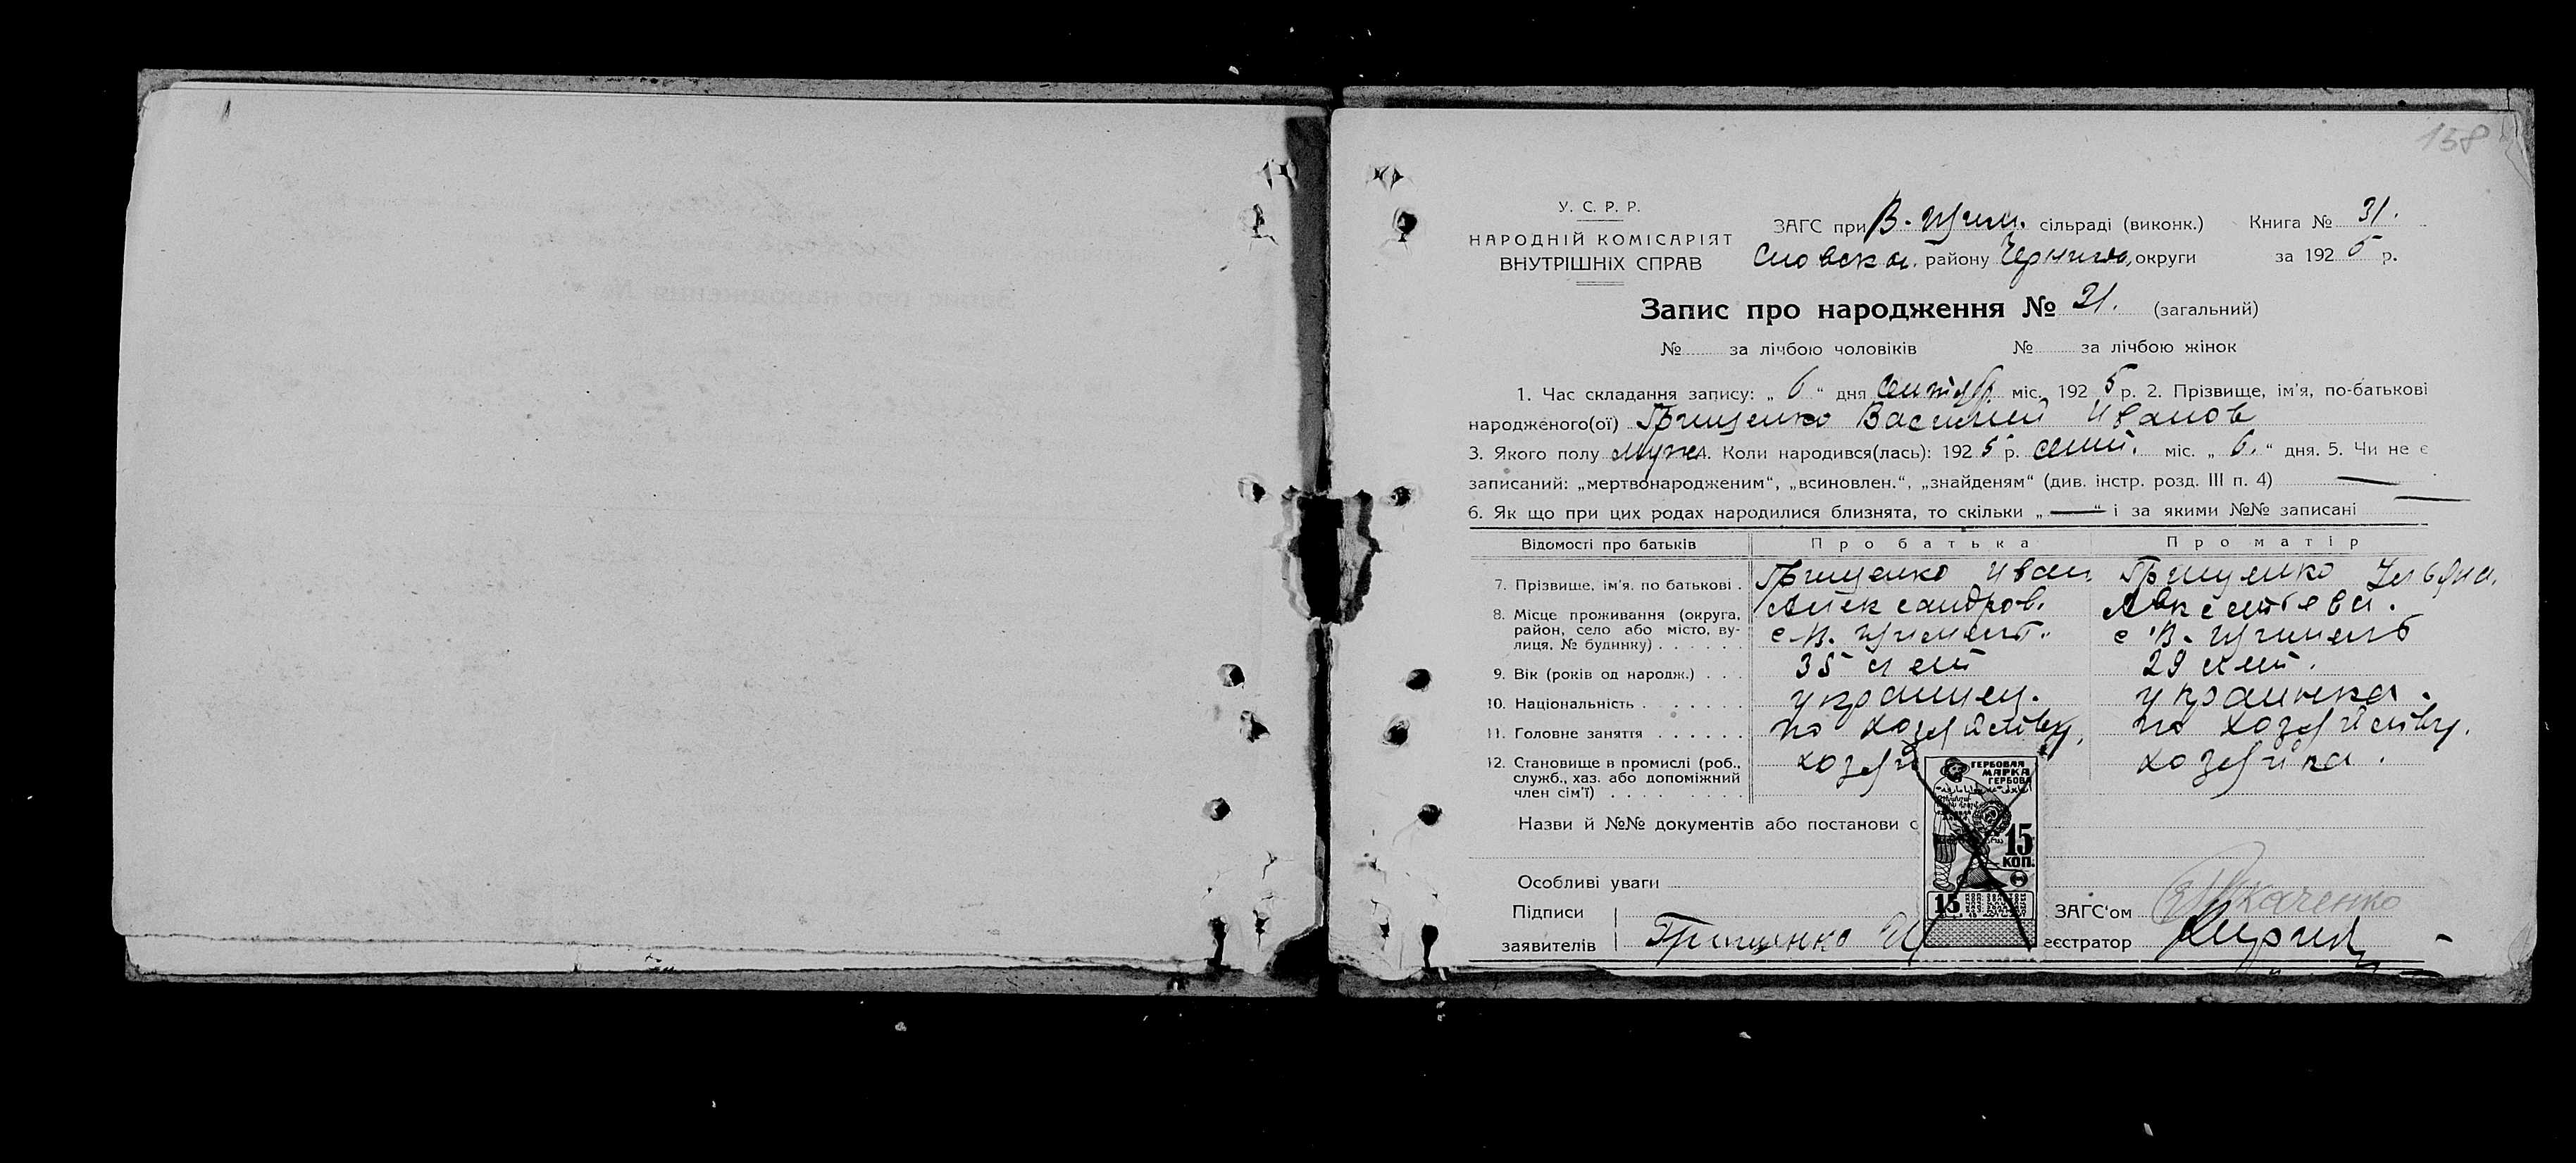 158
У. С. Р. Р.
НАРОДНІЙ КОМІСАРІЯТ
ВНУТРІШНІХ СПРАВ
ЗАГС при В. сільраді (виконк.) Книга № 31.
району округи за 1925 р.
Запис про народження № 31. (загальний)
№ за лічбою чоловіків № за лічбою жінок
1. Час складання запису: „ 6 “ дня Сентяб. міс. 1925 р. 2. Прізвище, ім'я, по-батькові
народженого(ої) Грищенко Василий Иванов
3. Якого полу муж. 4. Коли народився(лась): 1925 р. сент. міс. „ 6. “ дня. 5. Чи не є
записаний: „мертвонародженим“, „всиновлен.“, „знайденям“ (див. інстр. розд. III п. 4) —
6. Як що при цих родах народилися близнята, то скільки „ — “ і за якими №№ записані —
Відомості про батьків Про батька Про матір
7. Прізвище, ім'я, по батькові . Грищенко Иван Грищенко Ульяна.
Александров. Авксентьева.
8. Місце проживання (округа, район, село або місто, вулиця, № будинку) . . . . . . с. В. с. В.
9. Вік (років од народж.) . . . 35 лет 29 лет.
10. Національність . . . . . . украинец. украинка.
11. Головне заняття . . . . . . по хозяйству, по хозяйству.
12. Становище в промислі (роб., служб., хаз. або допоміжний член сім'ї) . . . . . . . . хозяй хозяйка.
ГЕРБОВАЯ
МАРКА
ГЕРБОВА
15
КОП.
15
Назви й №№ документів або постанови с
Особливі уваги
Підписи
заявителів Грищенко И
ЗАГС'ом Ткаченко
еєстратор